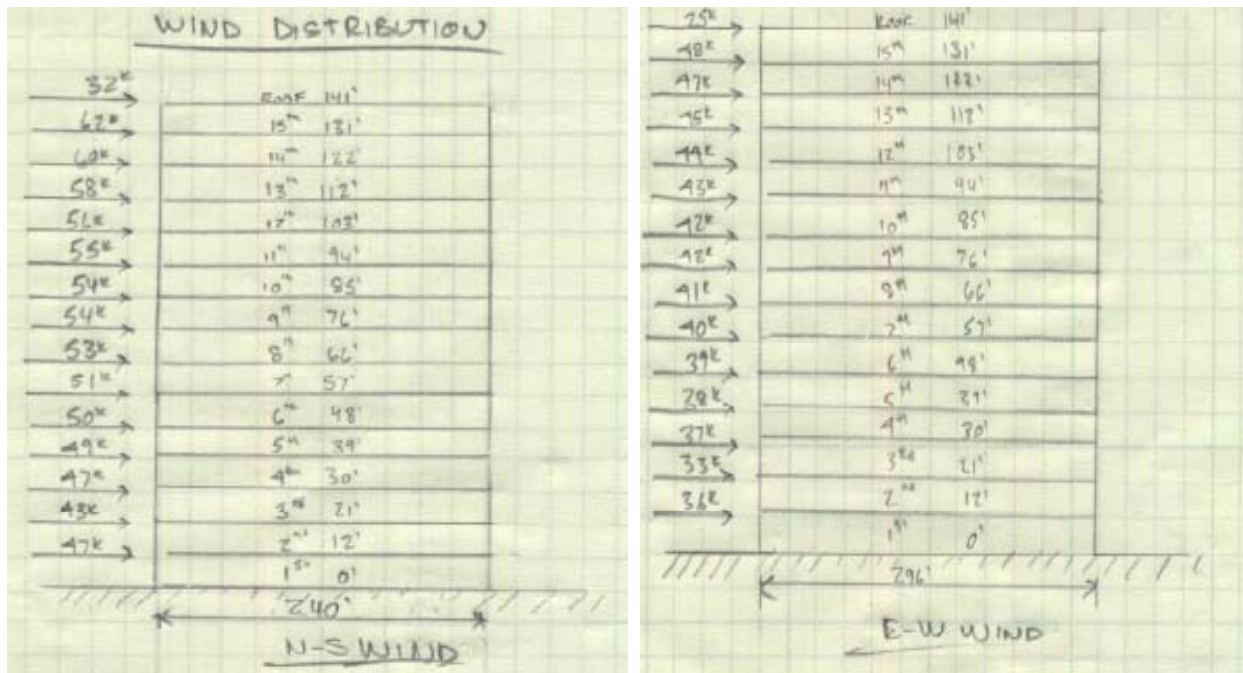 WIND DISTRIBUTION
32ᵏ ROOF 141'
62ᵏ 15ᵗʰ 131'
60ᵏ 14ᵗʰ 122'
58ᵏ 13ᵗʰ 112'
56ᵏ 12ᵗʰ 103'
55ᵏ 11ᵗʰ 94'
54ᵏ 10ᵗʰ 85'
54ᵏ 9ᵗʰ 76'
53ᵏ 8ᵗʰ 66'
51ᵏ 7ᵗʰ 57'
50ᵏ 6ᵗʰ 48'
49ᵏ 5ᵗʰ 39'
47ᵏ 4ᵗʰ 30'
43ᵏ 3ʳᵈ 21'
47ᵏ 2ⁿᵈ 12'
1ˢᵗ 0'
240'
N-S WIND
25ᵏ ROOF 141'
48ᵏ 15ᵗʰ 131'
47ᵏ 14ᵗʰ 122'
45ᵏ 13ᵗʰ 112'
44ᵏ 12ᵗʰ 103'
43ᵏ 11ᵗʰ 94'
42ᵏ 10ᵗʰ 85'
42ᵏ 9ᵗʰ 76'
41ᵏ 8ᵗʰ 66'
40ᵏ 7ᵗʰ 57'
39ᵏ 6ᵗʰ 48'
38ᵏ 5ᵗʰ 39'
37ᵏ 4ᵗʰ 30'
33ᵏ 3ʳᵈ 21'
36ᵏ 2ⁿᵈ 12'
1ˢᵗ 0'
296'
E-W WIND